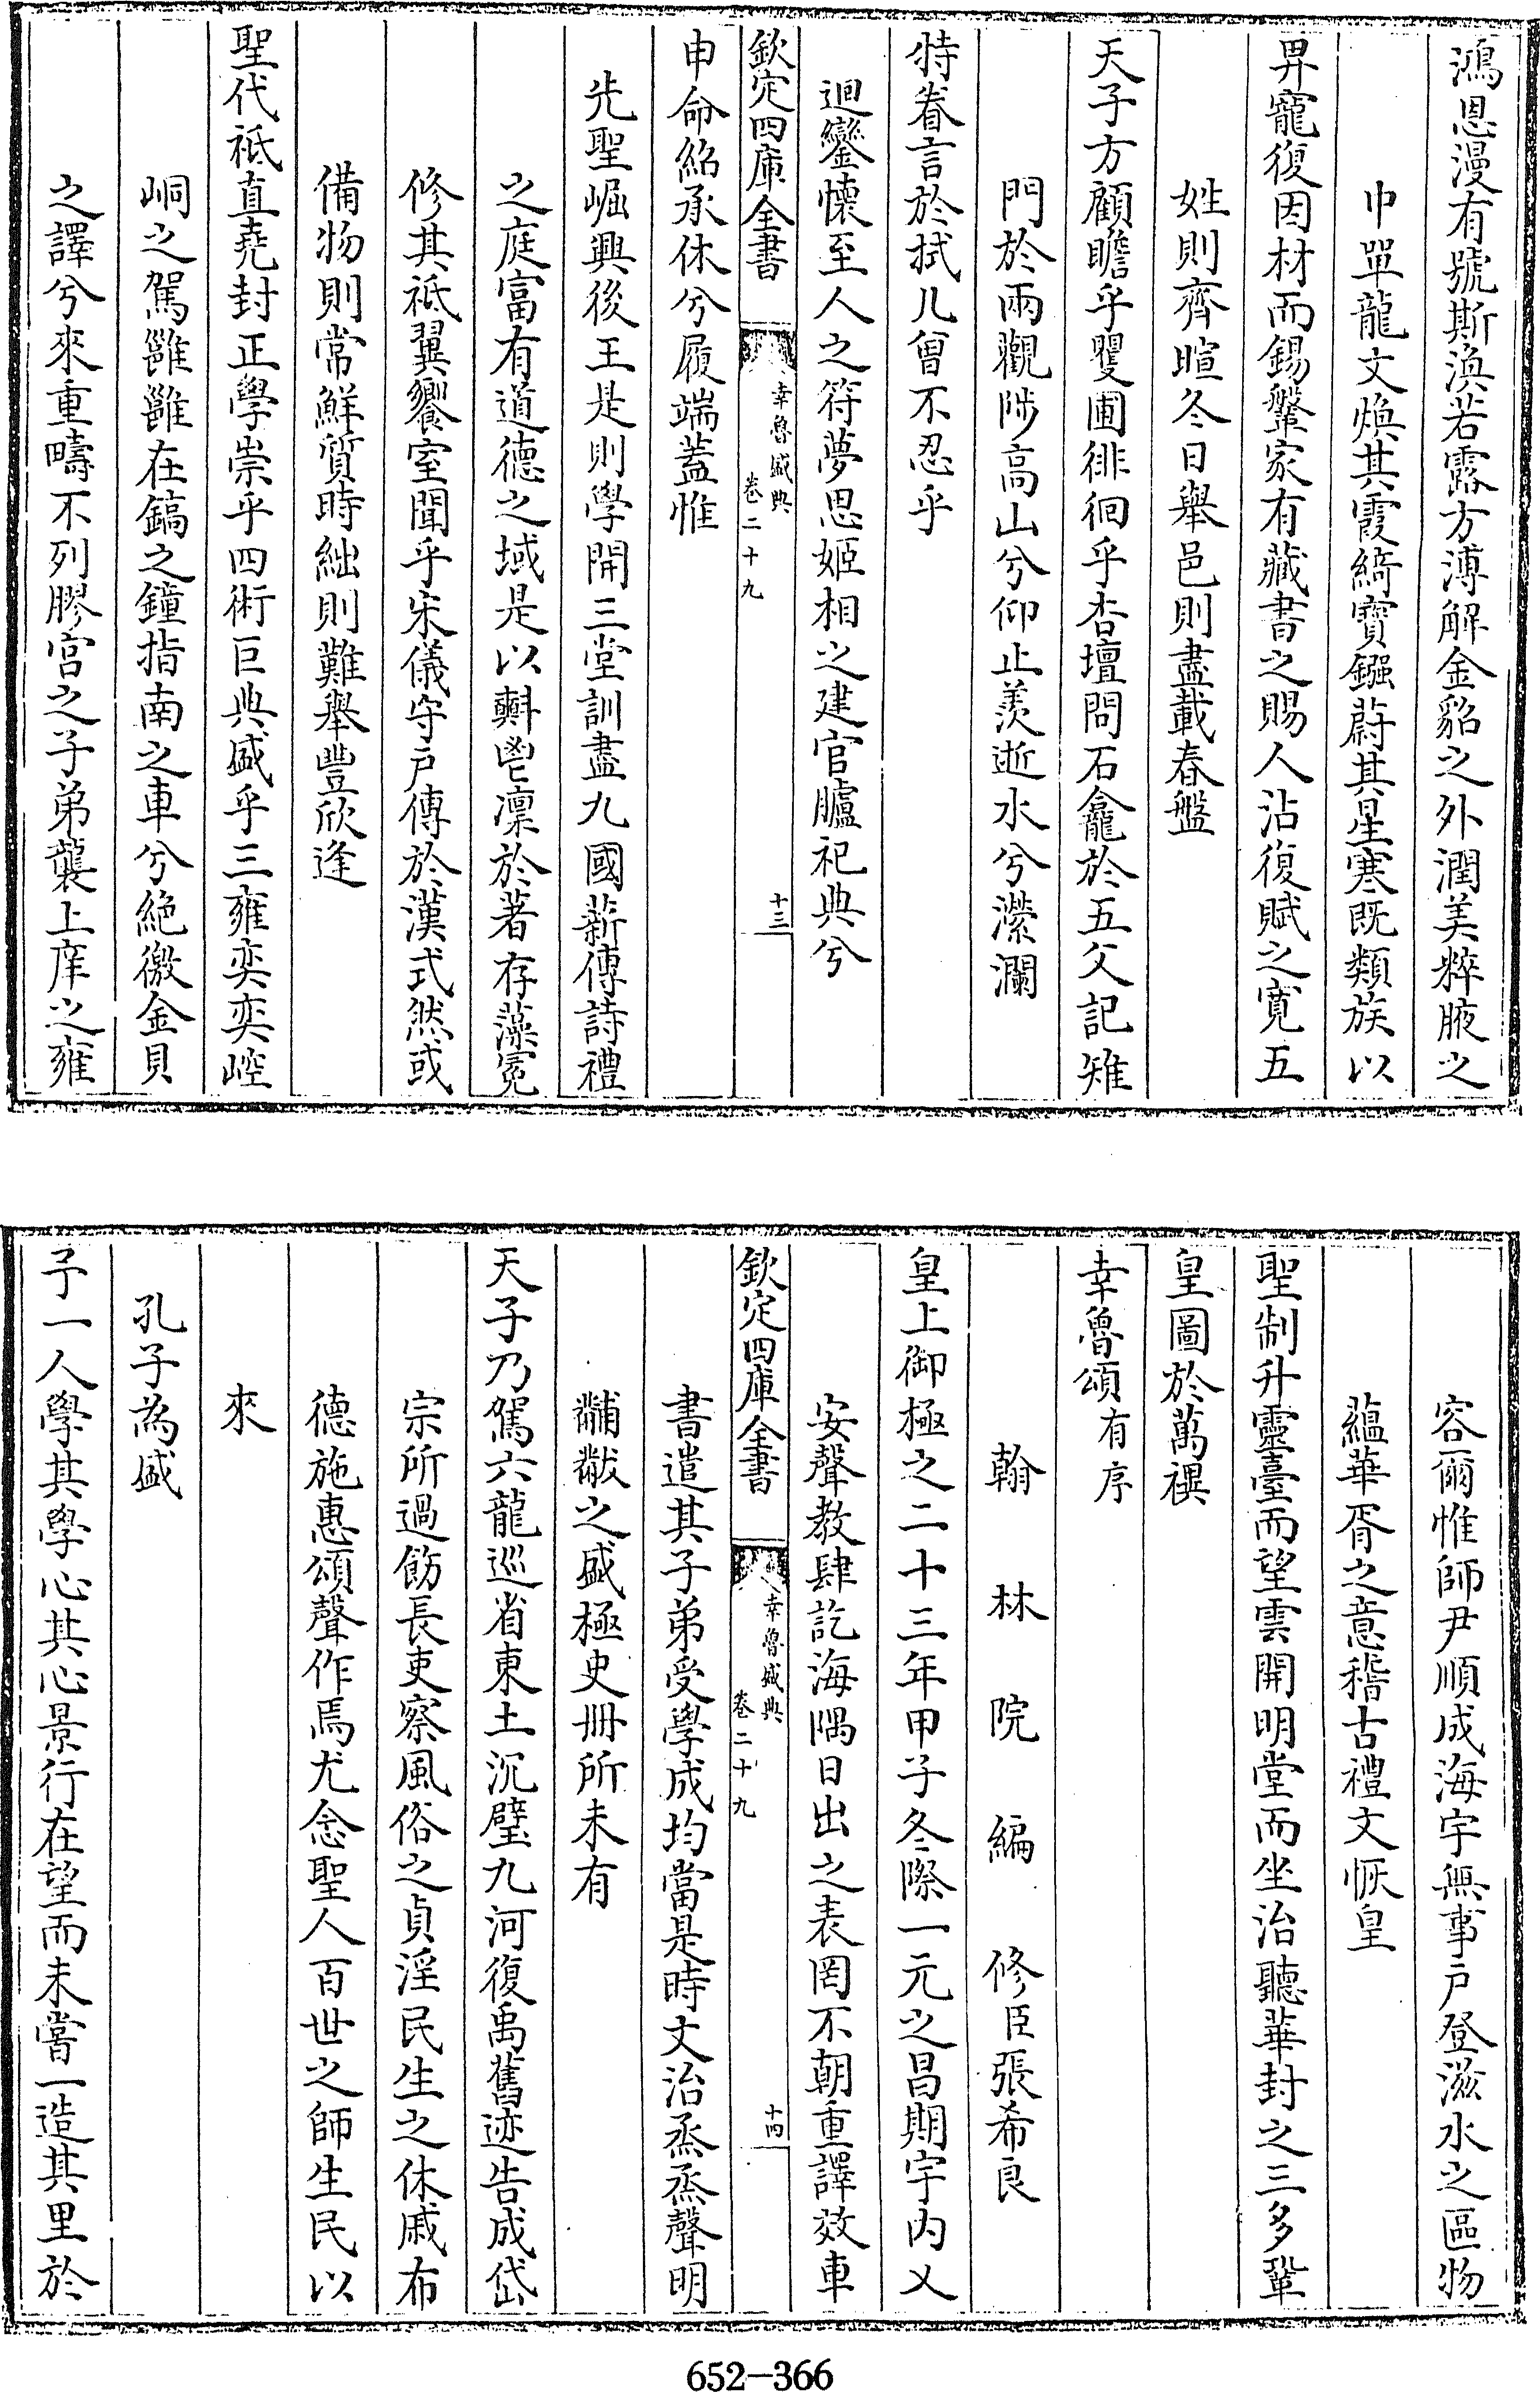 鴻恩漫有號斯渙若露方溥解金貂之外潤美粹腋之
巾單龍文煥其霞綺寶鏹蔚其星寒既類族以
畀寵復因材而錫鞶家有藏書之賜人沾復賦之寛五
姓則齊暄冬日舉邑則盡載春盤
天子方顧瞻乎矍圃徘徊乎杏壇問石龕於五父記雉
門於兩觀陟高山兮仰止羨逝水兮瀠瀾
特眷言於拭几曾不忍乎
迴鑾懷至人之符夢思姬相之建官臚祀典兮
欽定四庫全書
幸魯盛典
卷二十九
十三
申命紹承休兮履端蓋惟
先聖崛興後王是則學開三堂訓盡九國薪傳詩禮
之庭富有道德之域是以㪺鬯凛於著存藻冕
修其祗翼饗室聞乎宋儀守戸傳於漢式然或
備物則常鮮質時絀則難舉豐欣逢
聖代祗直堯封正學崇乎四術巨典盛乎三雍奕奕崆
峒之駕雝雝在鎬之鐘指南之車兮絶徼金貝
之譯兮來重疇不列膠宫之子弟襲上庠之雍
容爾惟師尹順成海宇無事戸登滋水之區物
藴華胥之意稽古禮文恢皇
聖制升靈臺而望雲開明堂而坐治聽華封之三多鞏
皇圖於萬禩
幸魯頌有序
翰林院編修臣張希良
皇上御極之二十三年甲子冬際一元之昌期宇内乂
安聲教肆訖海隅日出之表罔不朝重譯效車
欽定四庫全書
幸魯盛典
卷二十九
十四
書遣其子弟受學成均當是時文治烝烝聲明
黼黻之盛極史冊所未有
天子乃駕六龍巡省東土沉璧九河復禹舊迹告成岱
宗所過飭長吏察風俗之貞淫民生之休戚布
德施惠頌聲作焉尤念聖人百世之師生民以
來
孔子為盛
予一人學其學心其心景行在望而未嘗一造其里於
652-366